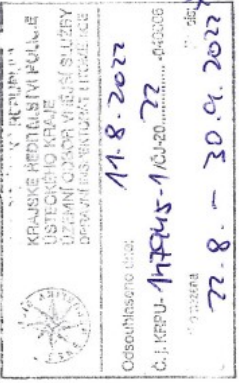 KRAJSKÉ ŘEDITELSTVÍ POLICIE
ÚSTECKÉHO KRAJE
ÚZEMNÍ ODBOR VNĚJŠÍ SLUŽBY
DOPRAVNÍ INSPEKTORÁT
Odsouhlaseno dne: 11.8.2022
Č.j. KRPU-147945-1/ČJ-2022-040006
22.8. – 30.9.2022